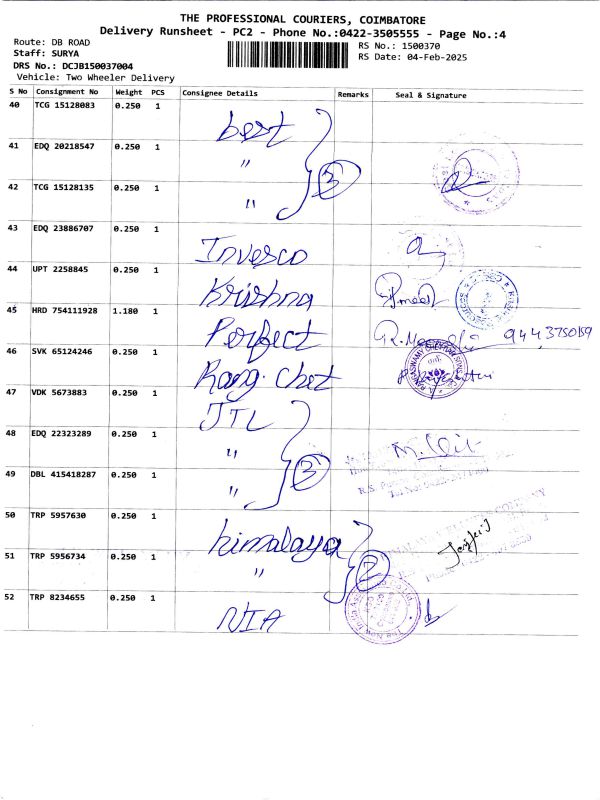 THE PROFESSIONAL COURIERS, COIMBATORE
Delivery Runsheet - PC2 - Phone No.:0422-3505555 - Page No.:4
Route: DB ROAD
Staff: SURYA
DRS No.: DCJB150037004
Vehicle: Two Wheeler Delivery
RS No.: 1500370
RS Date: 04-Feb-2025
S No Consignment No Weight PCS Consignee Details Remarks Seal & Signature
40 TCG 15128083 0.250 1 best
41 EDQ 20218547 0.250 1 "
3
42 TCG 15128135 0.250 1 "
43 EDQ 23886707 0.250 1 Invesco
44 UPT 2258845 0.250 1 Krishna
45 HRD 754111928 1.180 1 Perfect 9443750159
46 SVK 65124246 0.250 1 Rang. Chet
47 VDK 5673883 0.250 1 JTL
48 EDQ 22323289 0.250 1 "
3
49 DBL 415418287 0.250 1 "
50 TRP 5957630 0.250 1 himalaya
51 TRP 5956734 0.250 1 "
2
52 TRP 8234655 0.250 1 NIA